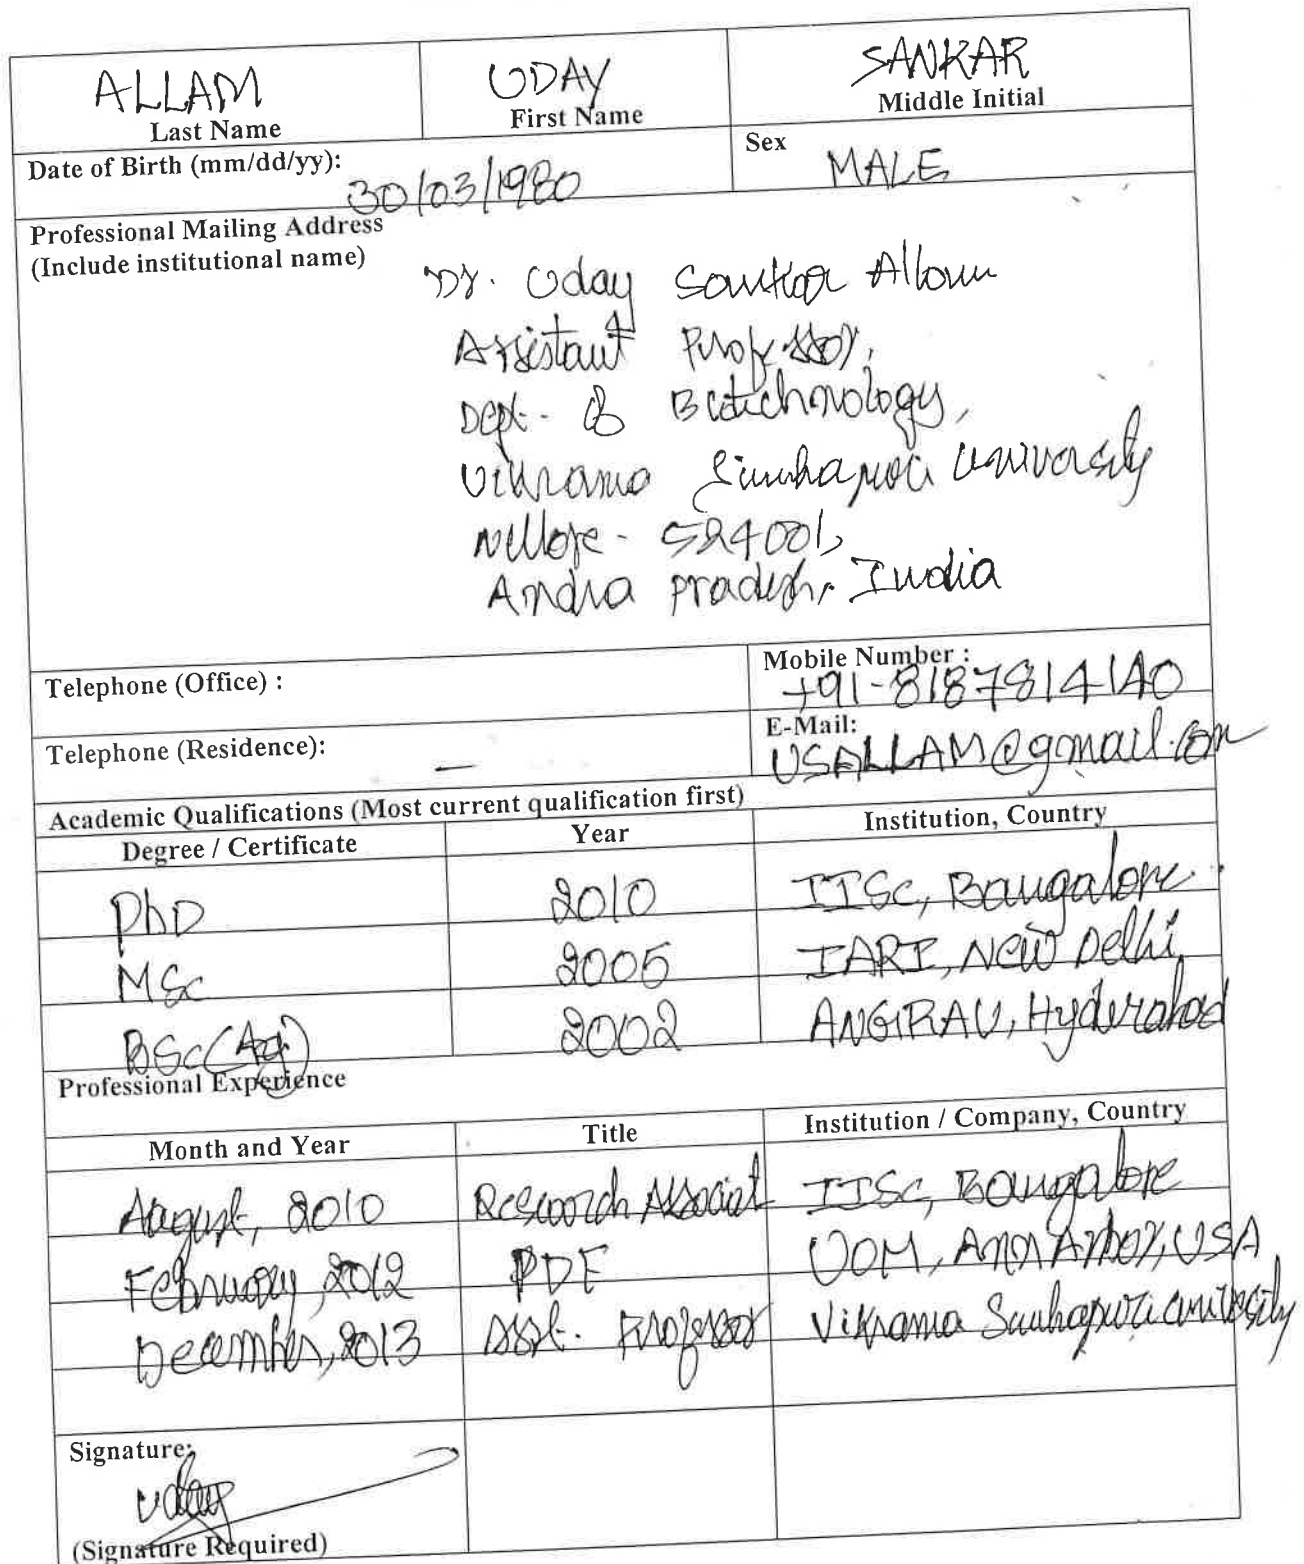 ALLAM UDAY SANKAR
Last Name First Name Middle Initial
Date of Birth (mm/dd/yy): 30/03/1980 Sex MALE
Professional Mailing Address
(Include institutional name)
Dr. Uday Sankar Allam
Assistant Professor,
Dept. of Biotechnology,
Vikrama Simhapuri University
Nellore - 524001,
Andra pradesh, India
Telephone (Office) : Mobile Number : +91-8187814140
Telephone (Residence): — E-Mail: USALLAM@gmail.com
Academic Qualifications (Most current qualification first)
Degree / Certificate Year Institution, Country
PhD 2010 IISc, Bangalore
MSc 2005 IARI, New Delhi
BSc (Ag) 2002 ANGRAU, Hyderabad
Professional Experience
Month and Year Title Institution / Company, Country
August, 2010 Research Associat IISc, Bangalore
February, 2012 PDF UOM, Ann Arbor, USA
December, 2013 Asst. Professor Vikrama Simhapuri University
Signature:
Uday
(Signature Required)